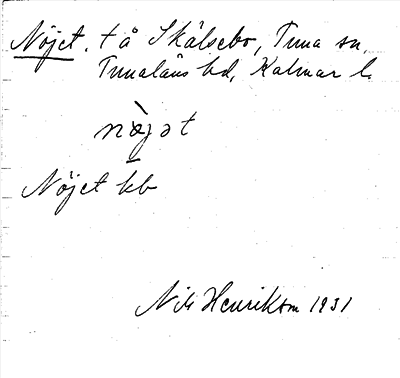 Nöjet. t å Skälsebo, Tuna sn,
Tunaläns hd, Kalmar l.
nö̀jət
Nöjet kb
Nils Henrikson 1931